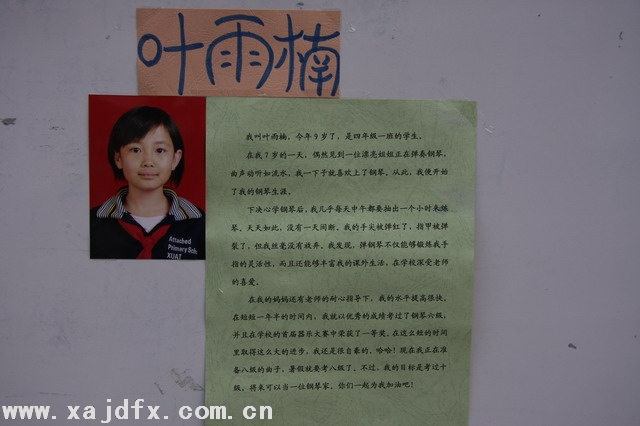 叶雨楠
我叫叶雨楠，今年9岁了，是四年级一班的学生。
在我7岁的一天，偶然见到一位漂亮姐姐正在弹奏钢琴，
曲声动听如流水，我一下子就喜欢上了钢琴。从此，我便开始
了我的钢琴生涯。
下决心学钢琴后，我几乎每天中午都要抽出一个小时来练
琴，天天如此，没有一天间断。我的手尖被弹红了，指甲被弹
裂了，但我丝毫没有放弃。我发现，弹钢琴不仅能够锻炼我手
指的灵活性，而且还能够丰富我的课外生活，在学校深受老师
的喜爱。
在我的妈妈还有老师的耐心指导下，我的水平提高很快。
在短短一年半的时间内，我就以优秀的成绩考过了钢琴六级，
并且在学校的首届器乐大赛中荣获了一等奖。在这么短的时间
里取得这么大的进步，我还是很自豪的，哈哈！现在我正在准
备八级的曲子，暑假就要考八级了。不过，我的目标是考过十
级，将来可以当一位钢琴家。你们一起为我加油吧！
Attached
Primary Sch
XUAT
www.xajdfx.com.cn